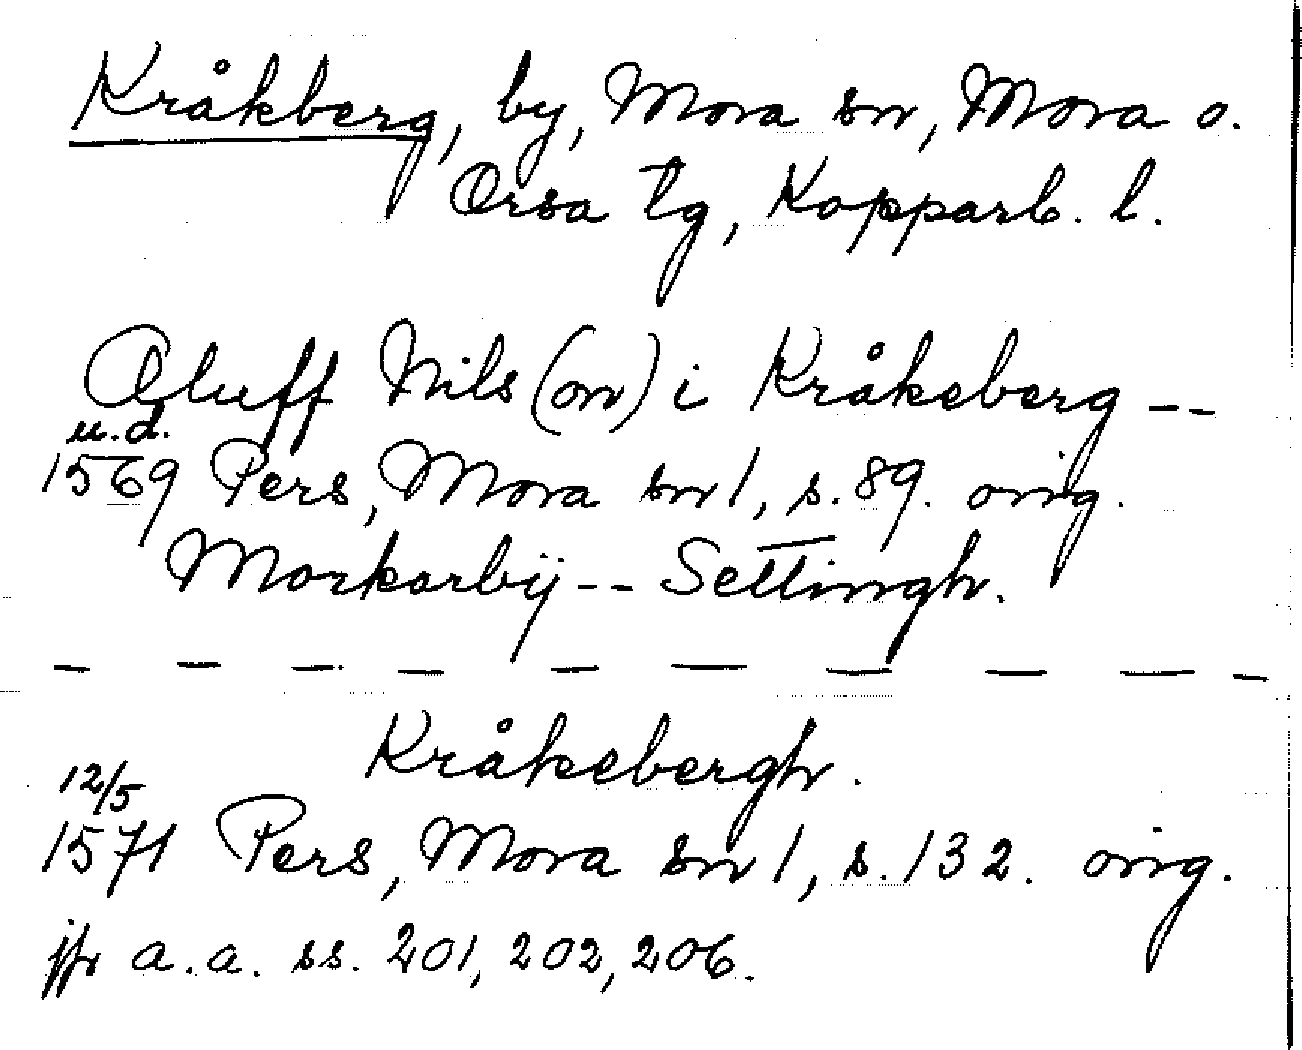 Kråkberg, by, Mora sn, Mora o.
Orsa tg, Kopparb. l.
Oluff Nils(on) i Kråkeberg --
u.d.
1569 Pers, Mora sn 1, s. 89. orig.
Morkarbij -- Settingh.
Kråkebergh.
12/5
1571 Pers, Mora sn 1, s. 132. orig.
jfr a.a. ss. 201, 202, 206.